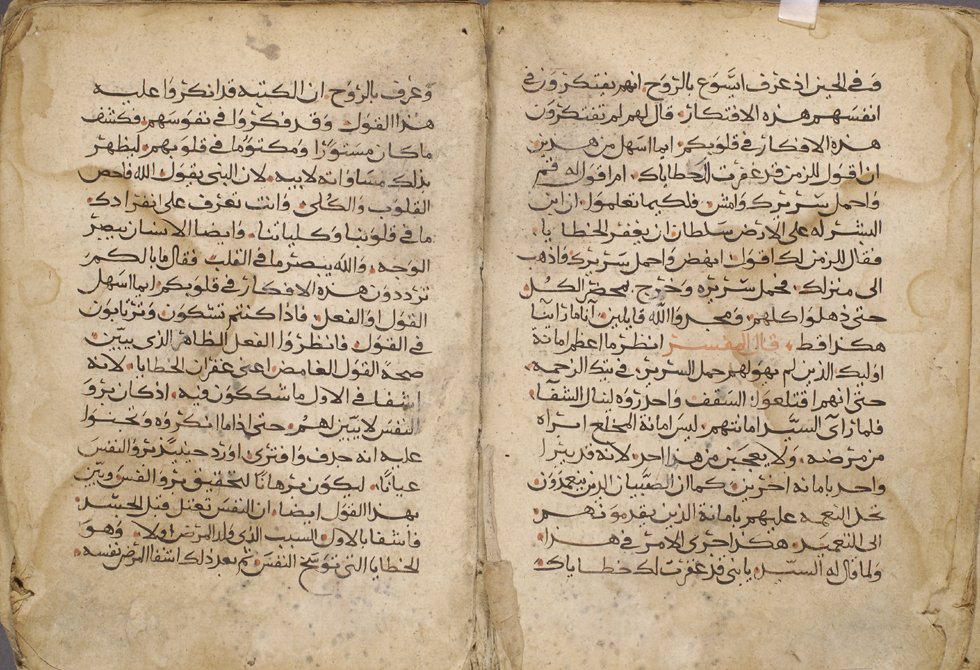 وفي الحين اذ عرف ايسوع بالروح انهم يفتكرون في
انفسهم هذه الافتكار. قال لهم لم تفتكرون
هذه الافكار في قلوبكم. ايما اسهل من هذين
ان اقول للزمن قد غفرت لك خطاياك. ام اقول له قم
واحمل سريرك وامش. فلكيما تعلموا. ان ابن
البشر له على الارض سلطان ان يغفر الخطايا.
فقال للزمن لك اقول انهض واحمل سريرك واذهب
الى منزلك. فحمل سريره وخرج بمحضر الكل
حتى ذهلوا كلهم. ومجدوا الله قايلين. اننا ما راينا
هكذا قط. قال المفسر انظر ما اعظم امانة
اوليك الذين لم يهولهم حمل السرير. في تيك الزحمه.
حتى انهم اقتلعوا السقف واحدروه لينال الشفآ.
فلما رآى السيد امانتهم. ليس امانة المخلع ابراه
من مرضه. ولا يعجبن من هذا احد. لانه قد يبرا
واحد بامانه اخرين. وكما ان الصبيان الذين يعمدون
تحل النعمه عليهم بامانة الذين يقدمونهم
الى التعميد. هكذا جرى الامر في هذا.
ولما قال له السيد يا بني قد غفرت لك خطاياك
وعرف بالروح. ان الكتبه قد انكروا عليه
هذا القول وقد فكروا في نفوسهم. فكشف
ما كان مستورًا ومكتومًا في قلوبهم. ليظهر
بذلك مساواته لابيه. لان النبي يقول الله فاحص
القلوب والكلى. وانت تعرف على انفرادك.
ما في قلوبنا وكلياتنا. وايضا الانسان يبصر
الوجه. والله يبصر ما في القلب فقال ما بالكم
ترددون هذه الافكار في قلوبكم ايما اسهل
القول او الفعل. فاذا كنتم تشكون وترتابون
في القول. فانظروا الفعل الظاهر الذي يبين
صحة القول الغامض اعني غفران الخطايا. لانه
اشفا في الاول ما شككون فيه. اذ كان برو
النفس لا يبين لهم. حتى اذا ما انكروه وتجنوا
عليه انه جدف وافترى. اورد حينيذ برو النفس
عيانًا. ليكون برهانًا لتحقيق برو النفس وبين
بهذا القول ايضا. ان النفس تعتل قبل الجسد.
فاشفا بالاول السبب الذي ولد المرض اولا. وهو
الخطايا التي توسخ النفس. ثم بعد ذلك اشفا المرض نفسه.